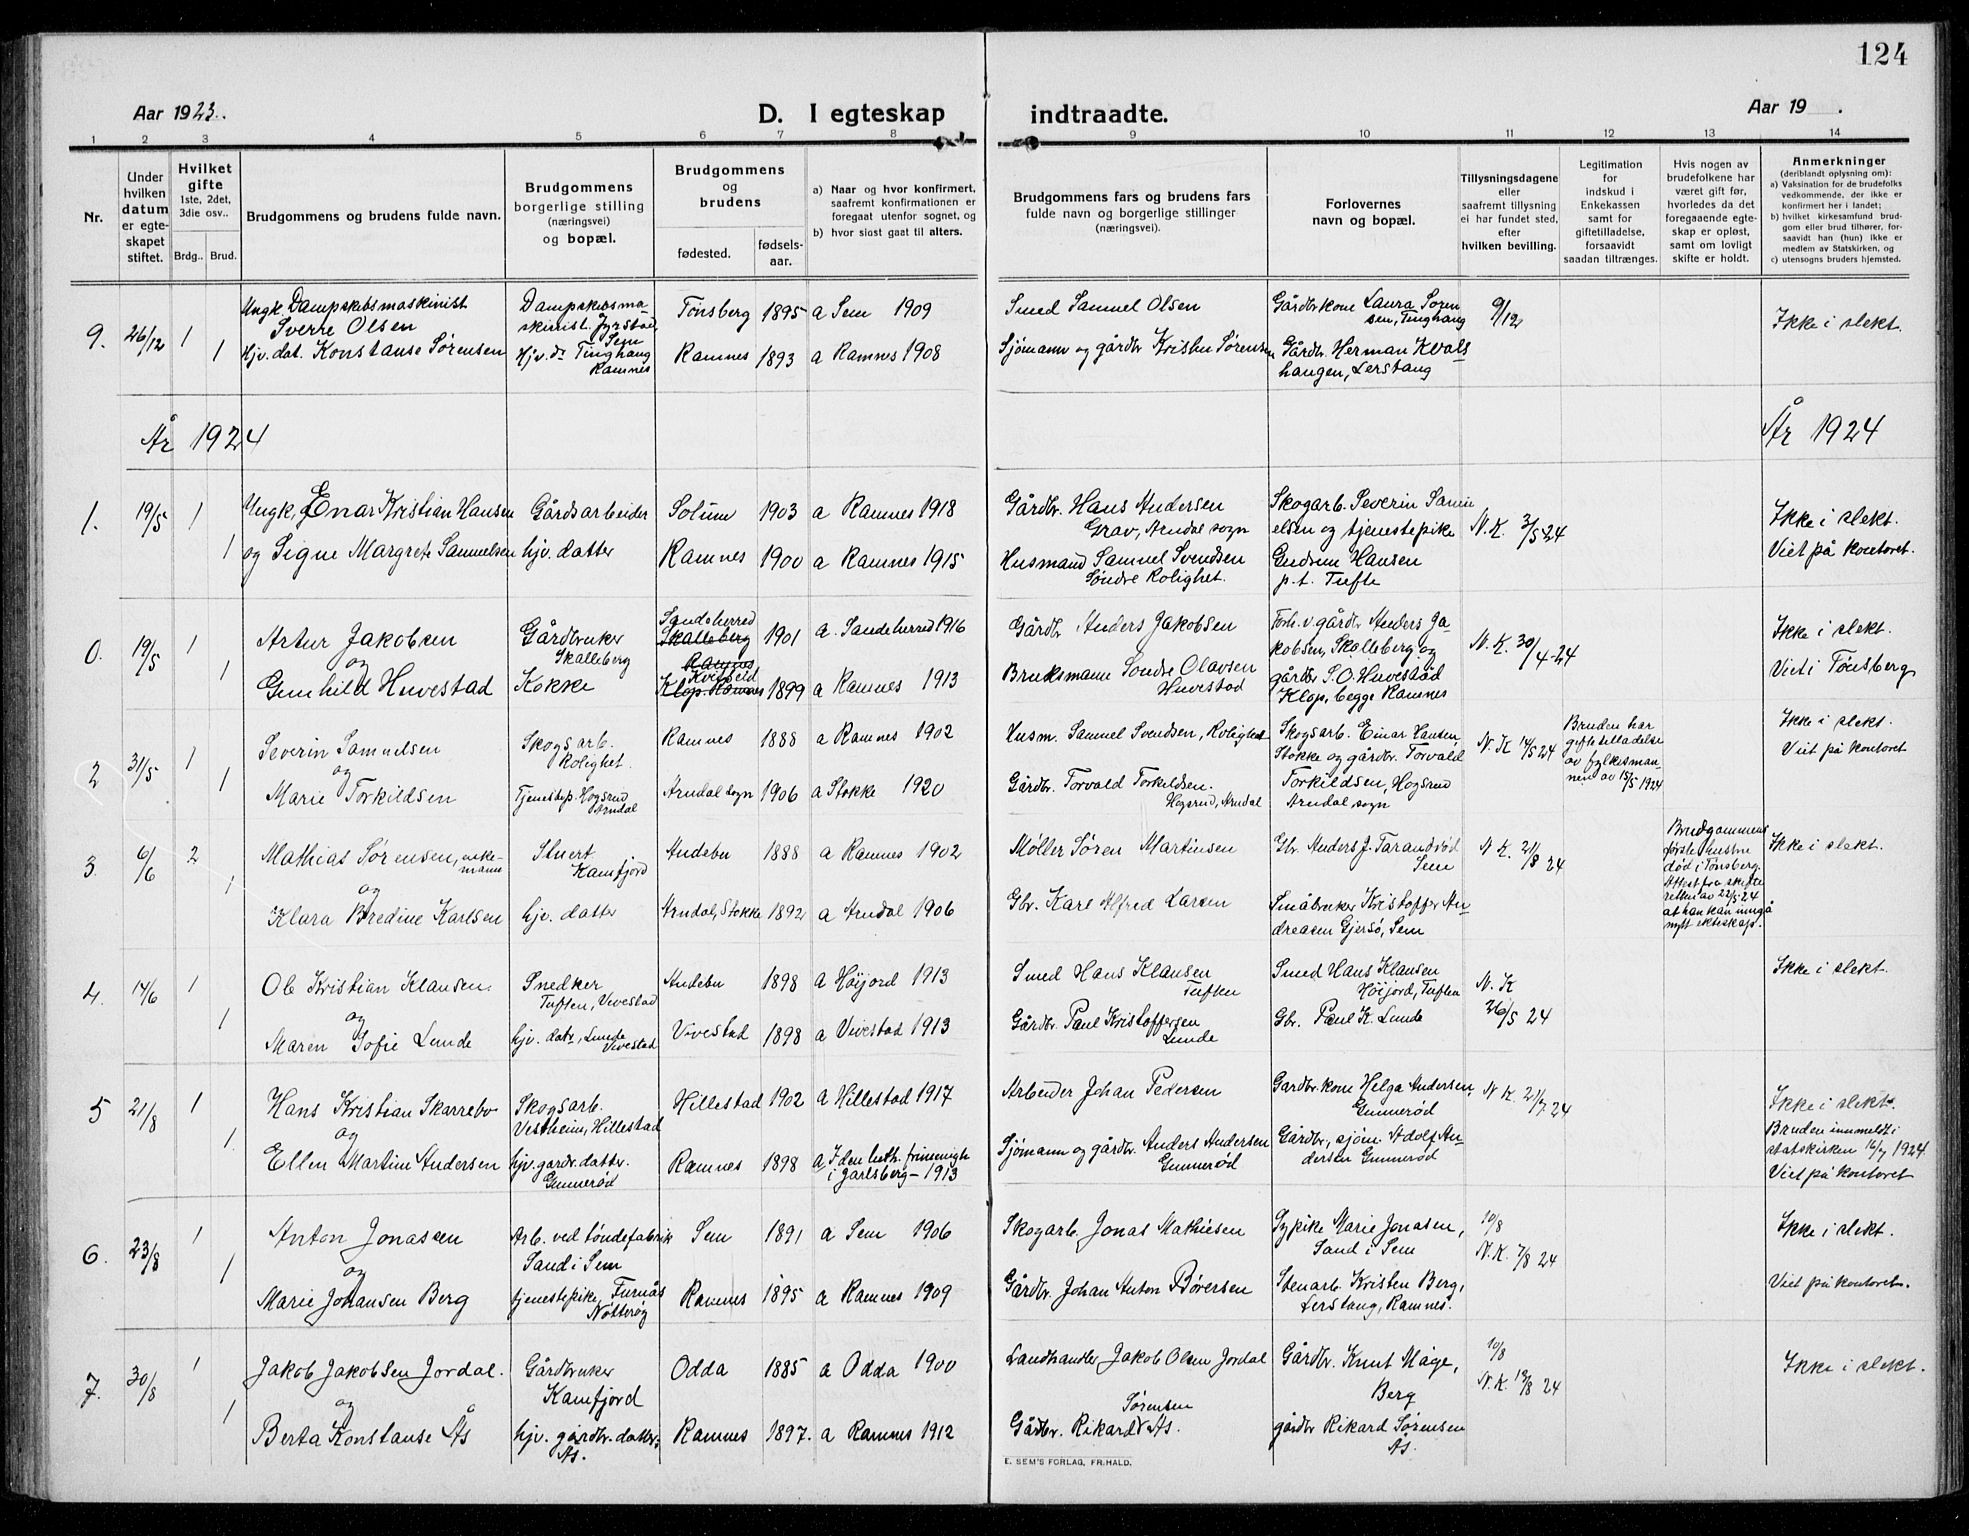 124
Aar 1923.
D. I egteskap indtraadte.
Aar 19 .
1 2 3 4 5 6 7 8 9 10 11 12 13 14
Nr.
Under hvilken datum er egte-skapet stiftet.
Hvilket gifte
1ste, 2det, 3die osv..
Brdg.. Brud.
Brudgommens og brudens fulde navn.
Brudgommens borgerlige stilling (næringsvei) og bopæl.
Brudgommens og brudens
fødested. fødsels-aar.
a) Naar og hvor konfirmert, saafremt konfirmationen er foregaat utenfor sognet, og
b) hvor sidst gaat til alters.
Brudgommens fars og brudens fars fulde navn og borgerlige stillinger (næringsvei).
Forlovernes navn og bopæl.
Tillysningsdagene eller saafremt tillysning ei har fundet sted, efter hvilken bevilling.
Legitimation for indskud i Enkekassen samt for giftetilladelse, forsaavidt saadan tiltrænges.
Hvis nogen av brudefolkene har været gift før, hvorledes da det foregaaende egte-skap er opløst, samt om lovligt skifte er holdt.
Anmerkninger
(deriblandt oplysning om):
a) Vaksination for de brudefolks vedkommende, der ikke er konfirmert her i landet;
b) hvilket kirkesamfund brud-gom eller brud tilhører, for-saavidt han (hun) ikke er medlem av Statskirken, og
c) utensogns bruders hjemsted.
9. 26/12 1 Ungk. Dampskibsmaskinist Sverre Olsen Dampskibsma-skinist. Jyrstad, Sem Tönsberg 1895 a Sem 1909 Smed Samuel Olsen Gårdbr.kone Laura Soren sen, Tinghaug 9/12 Ikke i slekt.
1 Hjv. dat. Konstanse Sørensen Hjv. dr Tinghaug Ramnes Ramnes 1893 a Ramnes 1908 Sjømann og gårdbr Kristen Sørensen Gårdbr. Herman Kvals haugen, Lerstang
År 1924 År 1924
1. 19/5 1 Ungk. Enar Kristian Hansen Gårdsarbeider Solum 1903 a Ramnes 1918 Gårdbr. Hans Andersen Grav, Arndal sogn Skogarb. Severin Samu elsen og tjenestepike N.K. 3/5-24 Ikke i slekt.
1 og Signe Margrete Samuelsen hjv. datter Ramnes 1900 a Ramnes 1915 Husmand Samuel Svendsen Söndre Rolighet. Gudrun Hansen p.t. Tufte Viet på kontoret.
0. 19/5 1 Artur Jakobsen Gårdbruker Skalleberg Sandeherred Skalleberg Ramnes 1901 a. Sandeherred 1916 Gårdbr Anders Jakobsen Forh. v. gårdbr Anders Ja-kobsen, Skalleberg og N.K. 30/4-24 Ikke i slekt.
1 og Gunhild Huvestad Kokke Kviteseid Klop. Ramnes 1899 a Ramnes 1913 Bruksmann Sondre Olavsen Huvestad gårdbr S. O. Huvestad Klop, begge Ramnes Viet i Tönsberg
2 31/5 1 Severin Samuelsen Skogsarb. Rolighet. Ramnes 1888 a Ramnes 1902 Husm. Samuel Svendsen, Rolighet Skogsarb. Einar Hansen Stokke og gårdbr. Torvald N.K 14/5 24 Bruden har giftetilladelse av fylkesman-nen av 15/5 1924 Ikke i slekt.
1 og Marie Torkildsen Tjenestep. Hogsrud Arndal Arndal sogn 1906 a Stokke 1920 Gårdbr. Torvald Torkildsen. Hogsrud, Arndal Torkildsen, Hogsrud Arndal sogn Viet på kontoret
3. 6/6 2 Mathias Sørensen, enke-mann Stuert Kamfjord Andebu 1888 a Ramnes 1902 Møller Sören Martinsen Gbr. Anders J. Tarandrød Sem N.K. 21/8 24 Brudgommens første hustru død i Tönsberg. Attest fra skifte retten av 22/5-24 at han kan inngå nytt ekteskap. Ikke i slekt.
1 og Klara Bredine Karlsen hjv. datter Arndal, Stokke 1892 a Arndal 1906 Gbr. Karl Alfred Larsen Småbruker Kristoffer An-dreasen Gjersö, Sem
4. 14/6 1 Ole Kristian Klausen. Snedker Tuften, Vivestad Andebu 1898 a Höijord 1913 Smed Hans Klausen Tuften Smed Hans Klausen Höijord, Tuften N.K 26/5 24 Ikke i slekt.
1 og Maren Sofie Lunde hjv. datr, Lunde Vivestad Vivestad 1898 a Vivestad 1913 Gårdbr. Paul Kristoffersen Lunde Gbr. Paul K. Lunde
5 21/8 1 Hans Kristian Skarrebo Skogsarb. Vestheim, Hillestad Hillestad 1902 a Hillestad 1917 Arbeider Johan Pedersen Gardbr.kone Helga Andersen, Gunnerød N.K. 21/7 24 Ikke i slekt.
1. og Ellen Martine Andersen hjv. gardbr. datter. Gunnerød Ramnes 1898 a I den luth. frimenigh i Jarlsberg – 1913 Sjömann og gårdbr. Anders Andersen Gunnerød Gårdbr, sjöm. Adolf An-dersen Gunnerød Bruden innmeldt i statskirken 16/7 1924 Viet på kontoret
6. 23/8 1 Anton Jonassen Arb. ved töndefabrik Sand i Sem Sem 1891 a Sem 1906 Skogarb. Jonas Mathiesen Sypike Marie Jonasen, Sand i Sem 10/8 N.K. 7/8 24 Ikke i slekt.
1 og Marie Johansen Berg tjenestepike Furnås Nötteröy Ramnes 1895 a Ramnes 1909 Gårdbr. Johan Anton Börresen Stenarb. Kristen Berg, Lerstang, Ramnes. Viet på kontoret.
7. 30/8 1 Jakob Jakobsen Jordal. Gårdbruker Kamfjord Odda 1885 a Odda 1900 Landhandler Jakob Olsen Jordal Gårdbr. Knut Måge, Berg 10/8 N.K. 13/8 24 Ikke i slekt.
1 og Berta Konstanse Ås hjv. gårdbr. datter, Ås. Ramnes 1897. a Ramnes 1912 Gårdbr. Rikard Sörensen Ås. gårdbr Rikard Sörensen Ås.
E. SEM'S FORLAG, FR:HALD.